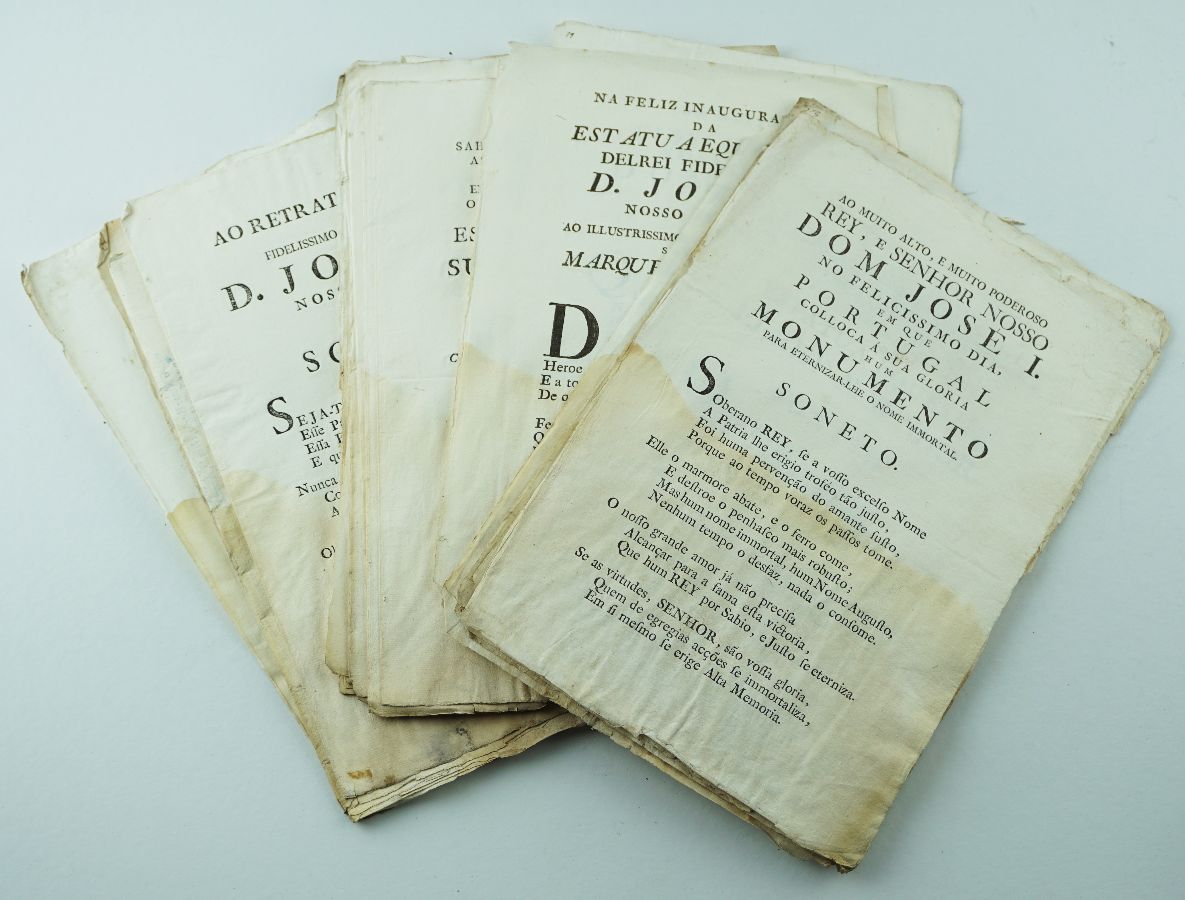 AO RETRAT
FIDELISSIMO
D. JO
NOS
SO
SEJA-T
Eſſe P
Eſſa
E qu
Nunca
Co
A
SAE
A
E
O
ES
SU
C
NA FELIZ INAUGURA
DA
ESTATUA EQU
DELREI FIDE
D. JO
NOSSO
AO ILLUSTRISSIMO
S
MARQUE
D
Heroe
E a to
De o
Fe
AO MUITO ALTO, E MUITO PODEROSO
REY, E SENHOR NOSSO
DOM JOSE I.
NO FELICISSIMO DIA,
EM QUE
PORTUGAL
COLLOCA Á SUA GLORIA
HUM
MONUMENTO
PARA ETERNIZAR-LHE O NOME IMMORTAL.
SONETO.
SOberano REY, ſe a voſſo excelſo Nome
A Patria lhe erigio troféo tão juſto,
Foi huma pervenção do amante ſuſto,
Porque ao tempo voraz os paſſos tome.
Elle o marmore abate, e o ferro come,
E deſtroe o penhaſco mais robuſto;
Mas hum nome immortal, hum Nome Auguſto,
Nenhum tempo o desfaz, nada o conſome.
O noſſo grande amor já não preciſa
Alcançar para a fama eſta victoria,
Que hum REY por Sabio, e Juſto ſe eterniza.
Se as virtudes, SENHOR, são voſſa gloria,
Quem de egregias acções ſe immortaliza,
Em ſi meſmo ſe erige Alta Memoria.